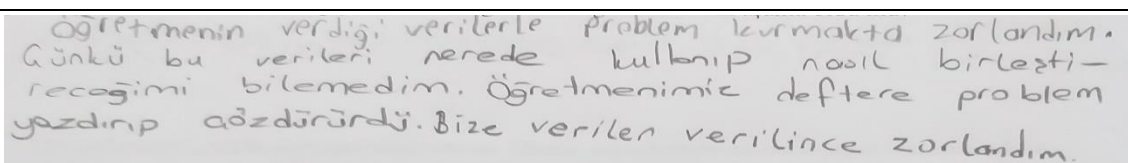 Öğretmenin verdiği verilerle problem kurmakta zorlandım.
Çünkü bu verileri nerede kullanıp nasıl birleşti-
receğimi bilemedim. Öğretmenimiz deftere problem
yazdırıp çözdürürdü. Bize veriler verilince zorlandım.